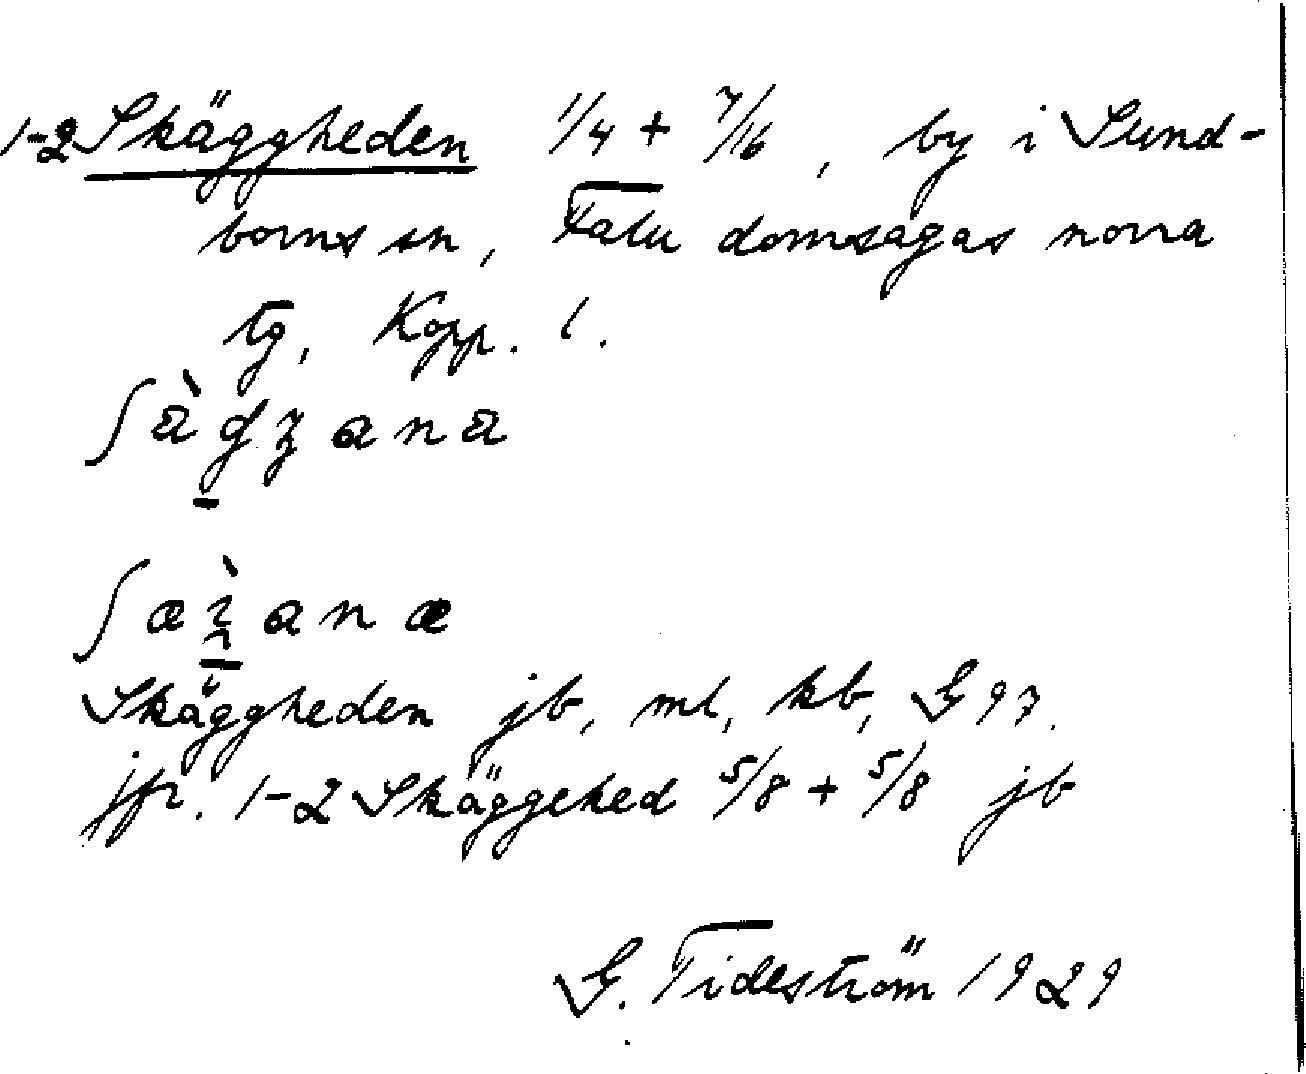 1-2 Skäggheden 1/4 + 7/16, by i Sund-
borns sn, Falu domsagas norra
tg, Kopp. l.
Skäggheden jb, ml, kb, G 97.
jfr. 1-2 Skäggehed 5/8 + 5/8 jb
G. Tideström 1929